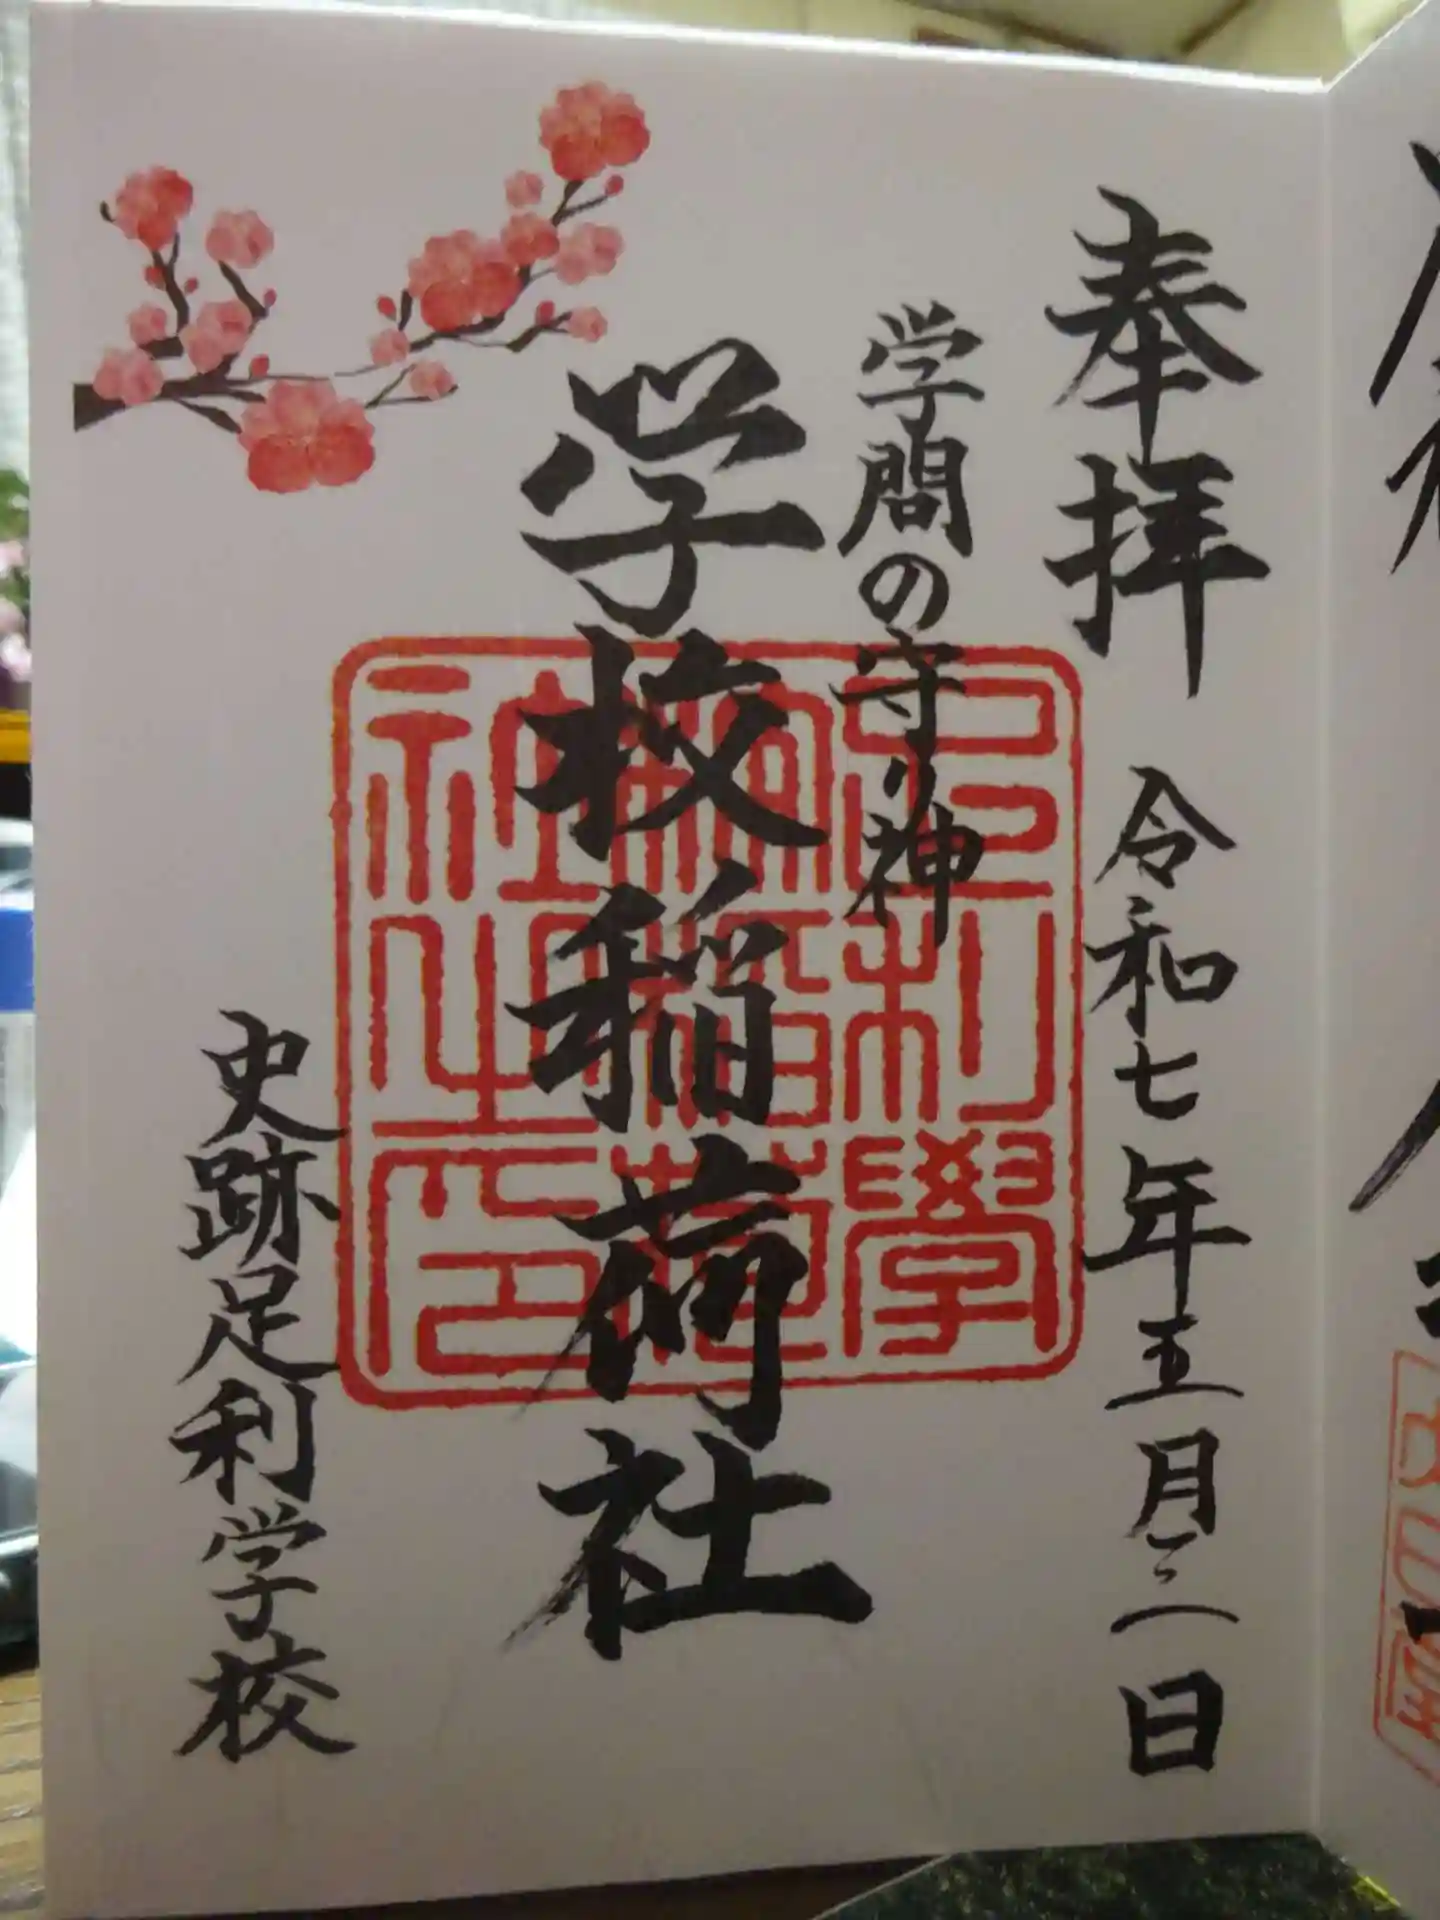 奉拝 令和七年五月三日
学問の守り神
学校稲荷社
史跡足利学校
足利學
校稲荷
社之印